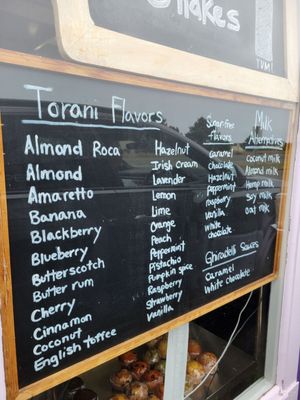 Shakes
YUM!
Torani Flavors
Almond Roca
Almond
Amaretto
Banana
Blackberry
Blueberry
Butterscotch
Butter rum
Cherry
Cinnamon
Coconut
English toffee
Hazelnut
Irish Cream
Lavender
Lemon
Lime
Orange
Peach
Peppermint
Pistachio
Pumpkin spice
Raspberry
Strawberry
Vanilla
Sugar free
flavors
caramel
chocolate
Hazelnut
Peppermint
raspberry
Vanilla
white
chocolate
Ghiradelli Sauces
Caramel
White chocolate
Milk
Alternatives
coconut milk
Almond milk
Hemp milk
Soy milk
oat milk